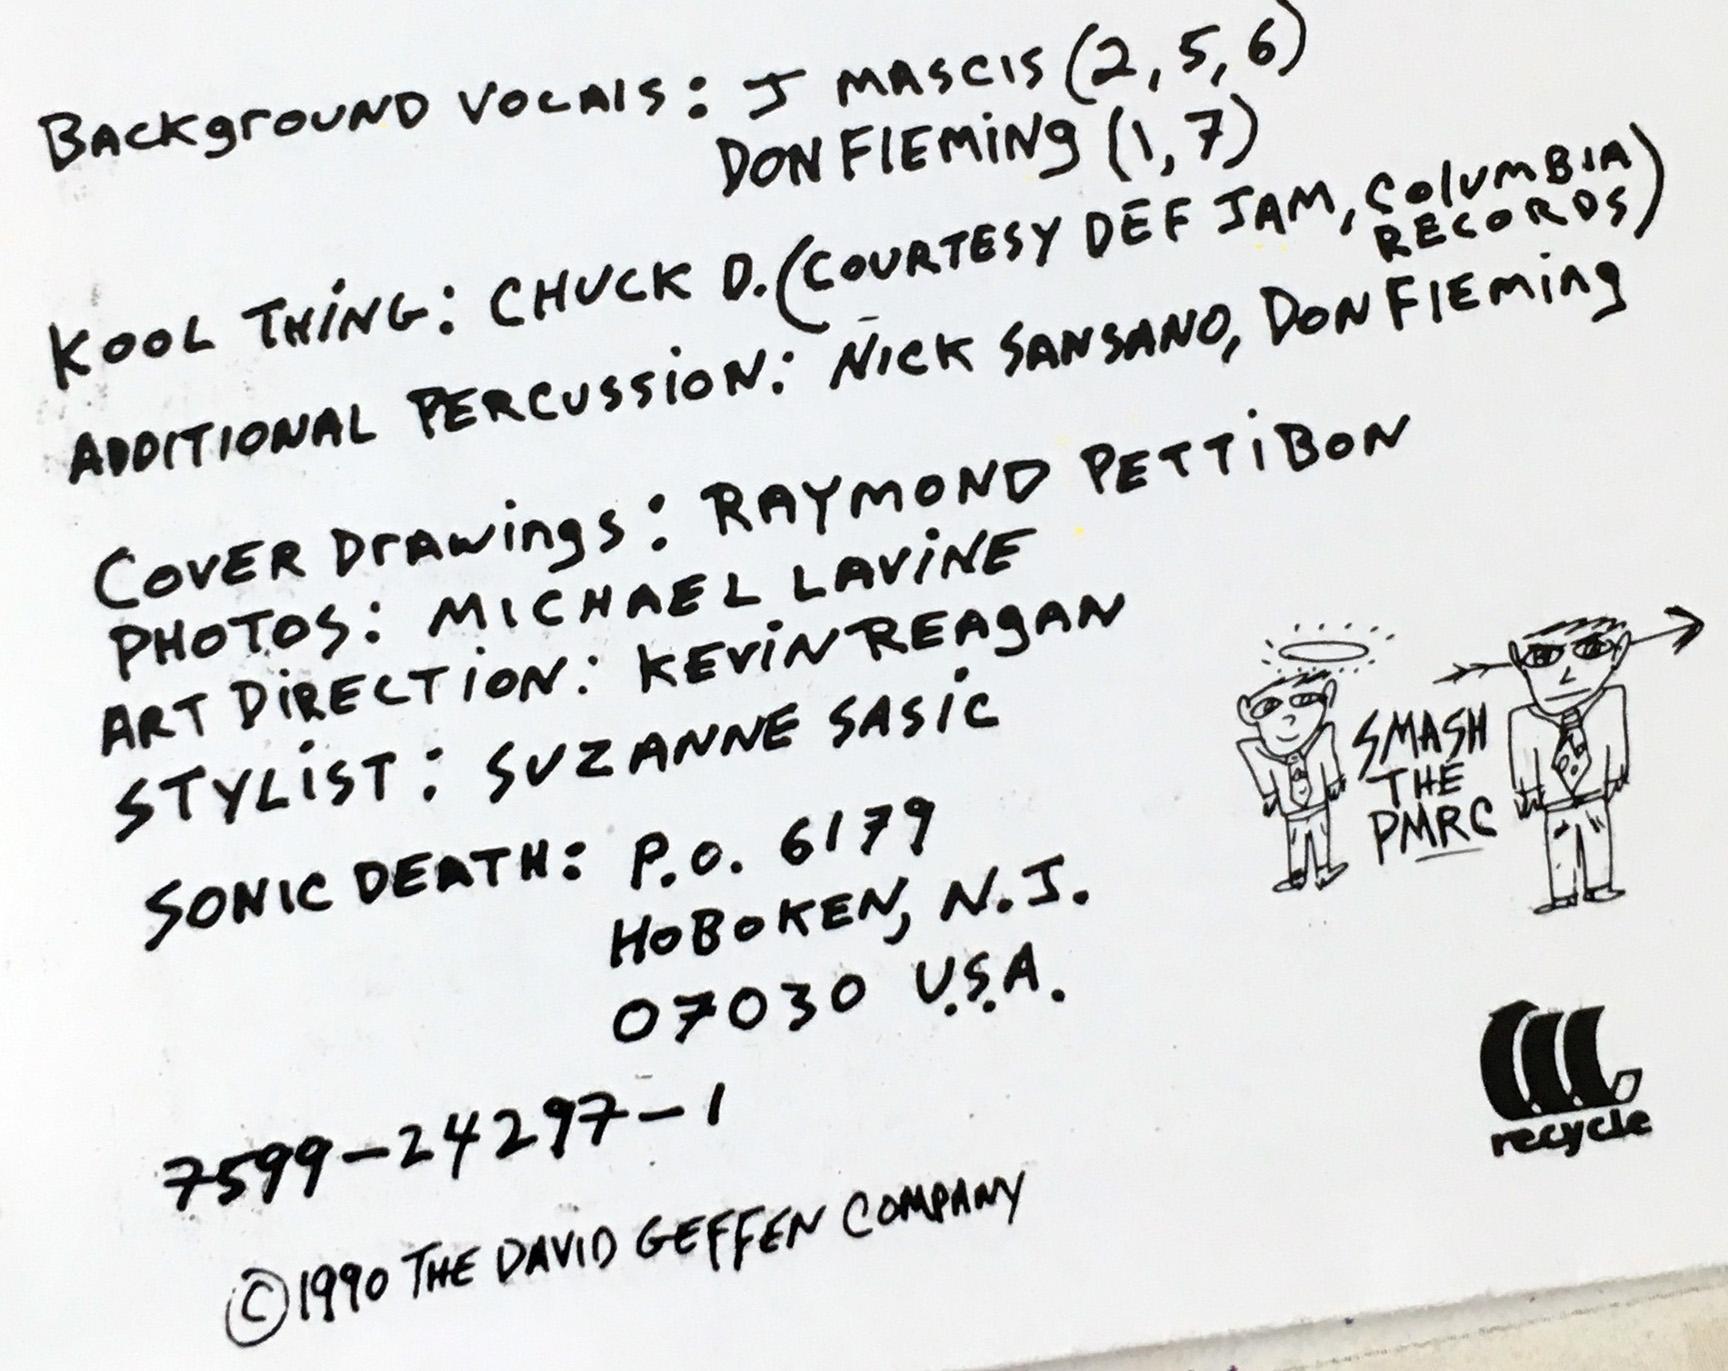 BACKgROUND VOCAlS: J MASCIS (2, 5, 6)
DON FlEMiNg (1, 7)
KOOL THiNG: CHUCK D. (COURTESY DEF JAM, COlUMBIA
RECORDS)
ADDITIONAL PERCUSSiON: NiCK SANSANO, DON FlEMiNg
COVER DrAwings: RAYMOND PETTiBON
PHOTOS: MICHAEL LAViNE
ART DiRECTiON: KEViN REAgAN
STYLiST: SUZANNE SASiC
SONIC DEATH: P.O. 6179
HOBOKEN, N.J.
07030 U.S.A.
SMASH
THE
PMRC
7599-24297-1
recycle
©1990 THE DAVID GEFFEN COMPANY